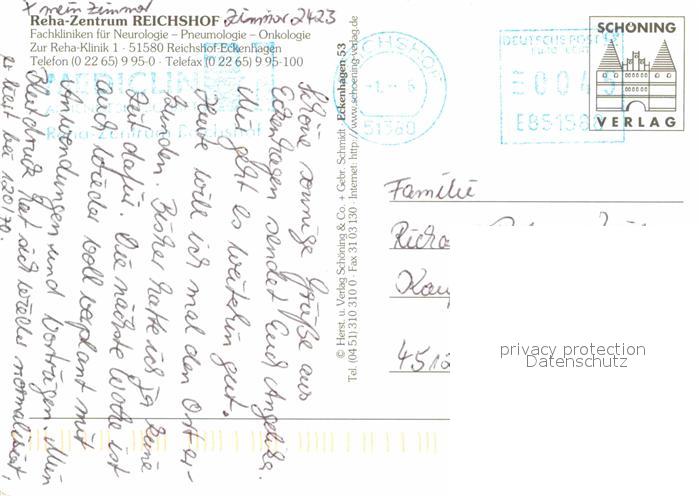 x mein Zimmer
Reha-Zentrum REICHSHOF Zimmer 2423
Fachkliniken für Neurologie – Pneumologie – Onkologie
Zur Reha-Klinik 1 · 51580 Reichshof-Eckenhagen
Telefon (0 22 65) 9 95-0 · Telefax (0 22 65) 9 95-100
MEDICLIN
Reha-Zentrum Reichshof
Schöne sonnige Grüße aus
Eckenhagen sendet Euch Angelika.
Mir geht es weiterhin gut.
Heute will ich mal den Ort er-
kunden. Bisher hatte ich ja keine
Zeit dafür. Die nächste Woche ist
auch wieder voll verplant mit
Anwendungen und Vorträgen. Mein
Blutdruck hat sich wieder normalisiert,
er liegt bei 120/70.
© Herst. u. Verlag Schöning & Co. + Gebr. Schmidt · Eckenhagen 53
Tel. (04 51) 310 310 0 · Fax 31 03 130 · Internet: http://www.schoening-verlag.de
REICHSHOF
51580
DEUTSCHE POST AG
SCHÖNING
VERLAG
Familie
privacy protection
Datenschutz